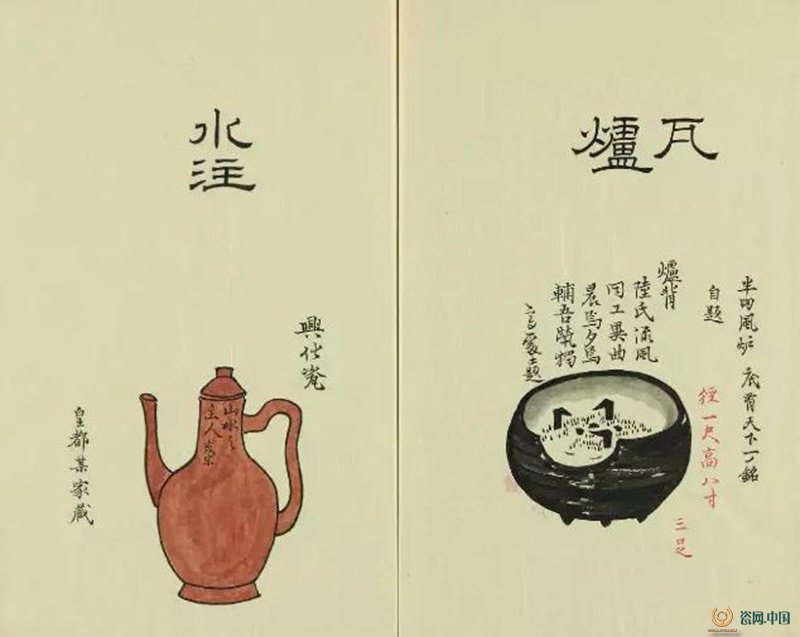 瓦爐
半田風炉 底有天下一銘
自題
徑一尺高八寸
三足
爐背
陸氏流風
同工異曲
晨烏夕烏
輔吾煢獨
題
水注
興庵
山水之
主人
皇都某家蔵
瓷网.中国